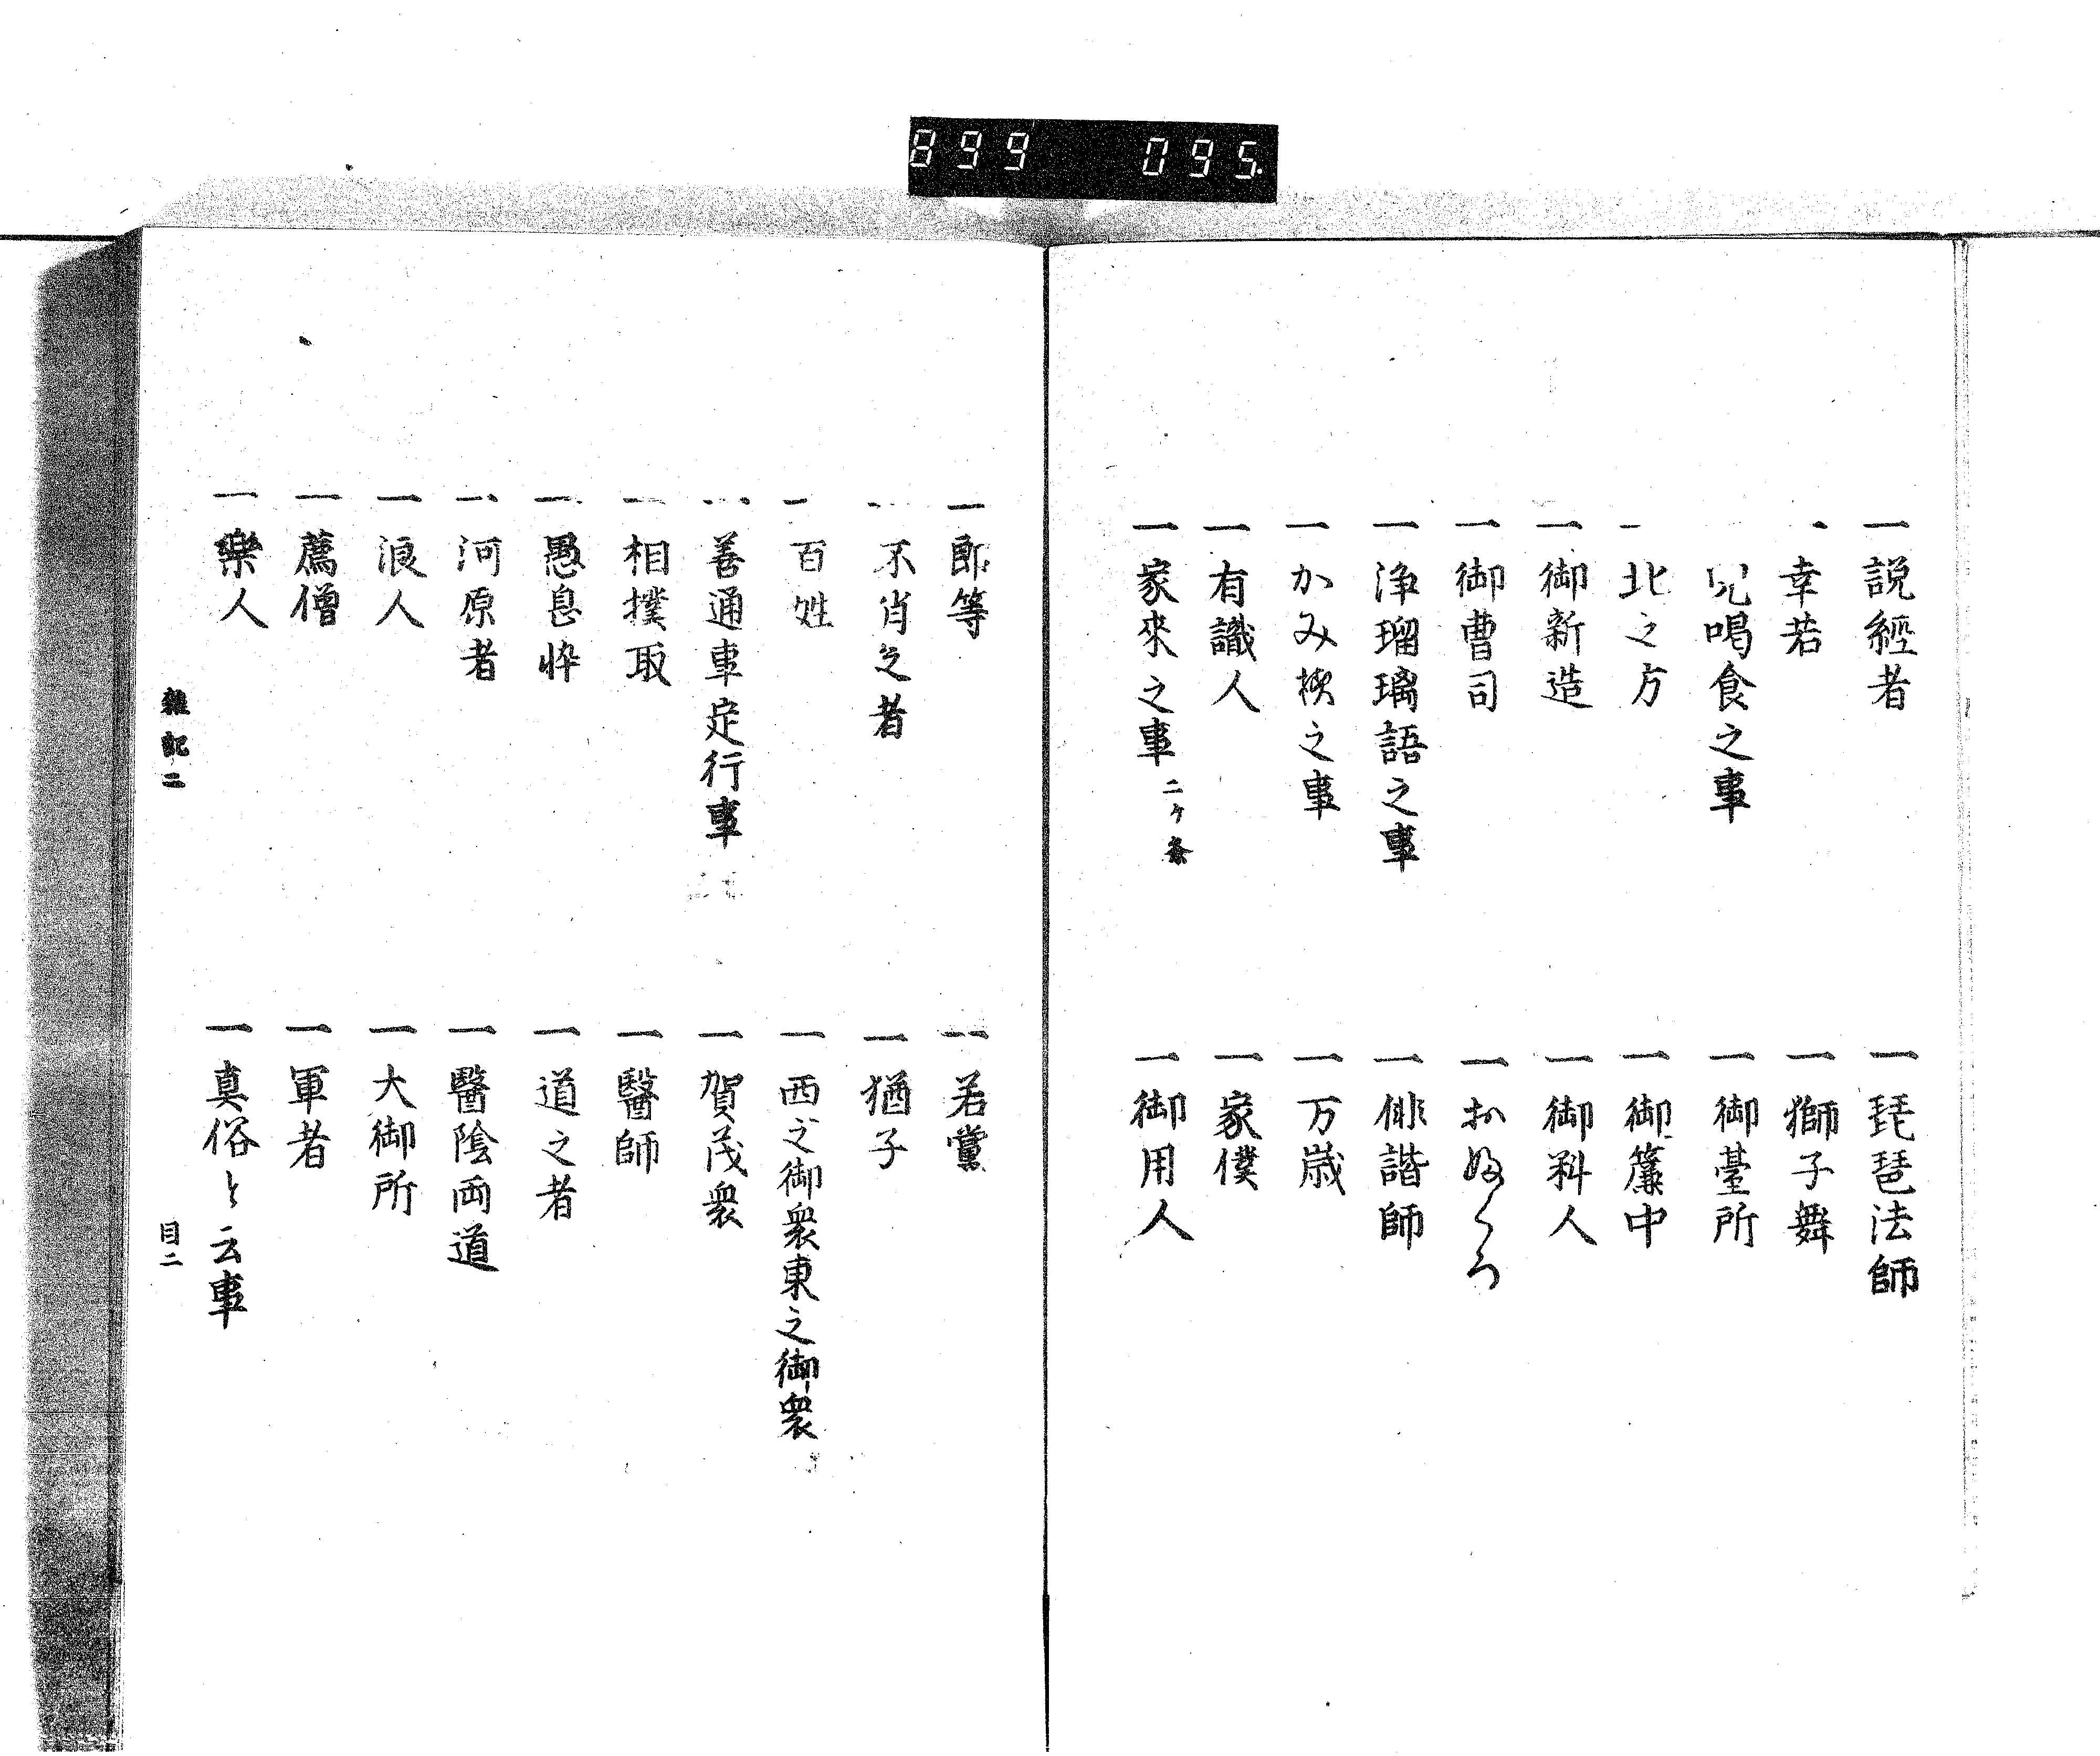 899 095
一説經者
一琵琶法師
一幸若
一獅子舞
児喝食之事
一御臺所
一北之方
一御簾中
一御新造
一御料人
一御曹司
一おふくろ
一浄瑠璃語之事
一俳諧師
一かみ様之事
一万歳
一有識人
一家僕
一家來之事 二ヶ条
一御用人
一郎等
一若黨
一不肖之者
一猶子
一百姓
一西之御衆東之御衆
一善通車定行事
一賀茂衆
一相撲取
一醫師
一愚息悴
一道之者
一河原者
一醫陰両道
一浪人
一大御所
一薦僧
一軍者
一樂人
一真俗と云事
雜記二
目二